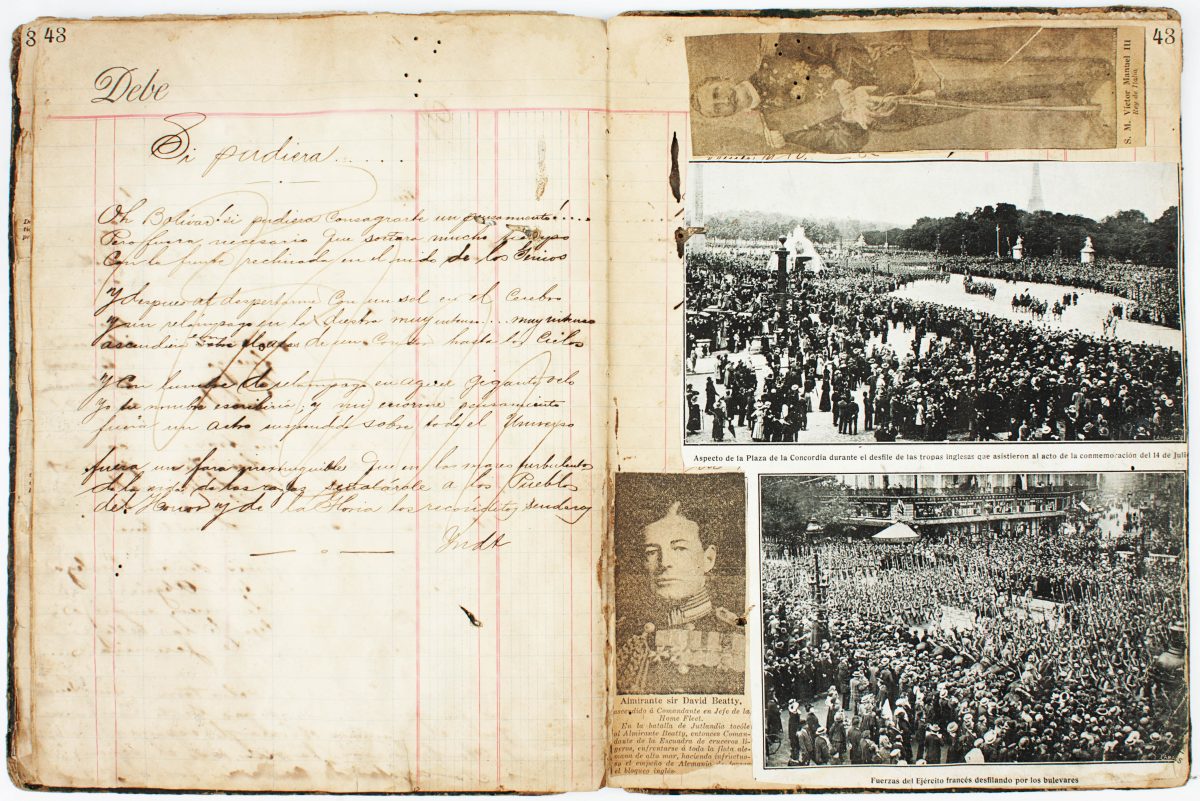 48
Debe
Si pudiera......
Oh Bolivar! si pudiera consagrarte un pensamiento!....
Pero fuera necesario que soñara mucho tiempo
Con la frente reclinada en el nido de los Genios
Y despues al despertarme con un sol en el Cerebro
y un relámpago en la diestra muy intenso.... muy intenso
ascendiera sobre de un Condor hasta los Cielos
Y con lumbre de relampago en aquel gigante velo
Yo tu nombre escribiria; y mi enorme pensamiento
fuera un astro suspendido sobre todo el Universo
fuera un faro que en los mares turbulentos
de la vida de las razas señalárale a los Pueblos
del Honor y de la Gloria los recónditos senderos
48
S. M. Víctor Manuel III
Rey de Italia
Aspecto de la Plaza de la Concordia durante el desfile de las tropas inglesas que asistieron al acto de la conmemoración del 14 de Julio
Almirante sir David Beatty,
ascendido á Comandante en Jefe de la
Home Fleet.
En la batalla de Jutlandia tocóle
al Almirante Beatty, entonces Coman-
dante de la Escuadra de cruceros li-
geros, enfrentarse á toda la flota ale-
mana de alta mar, haciendo infructuo-
so el empeño de Alemania de
el bloqueo inglés
Fuerzas del Ejército francés desfilando por los bulevares